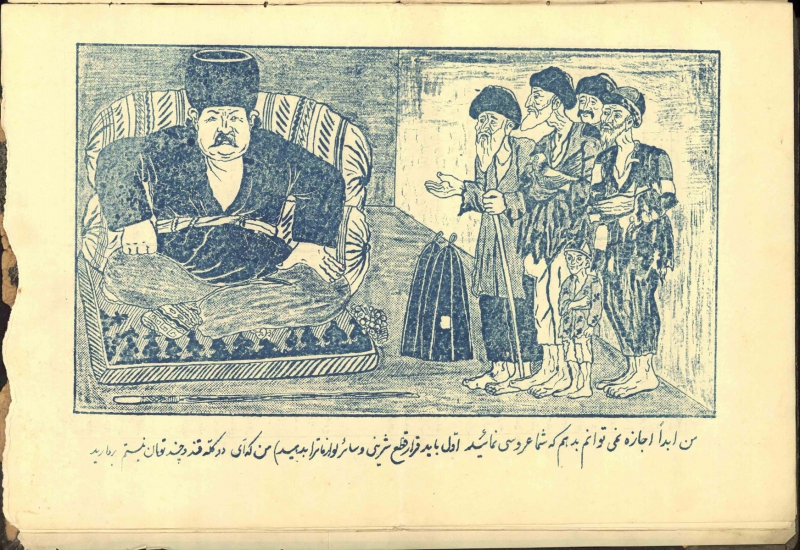 من ابداً اجازه نمی توانم بدهم که شما عروسی نمائید اول باید قرار قطع شرینی و سائر لوازماترا بدهید) من گدای دو کله قند و چند تومان نیستم بردارید